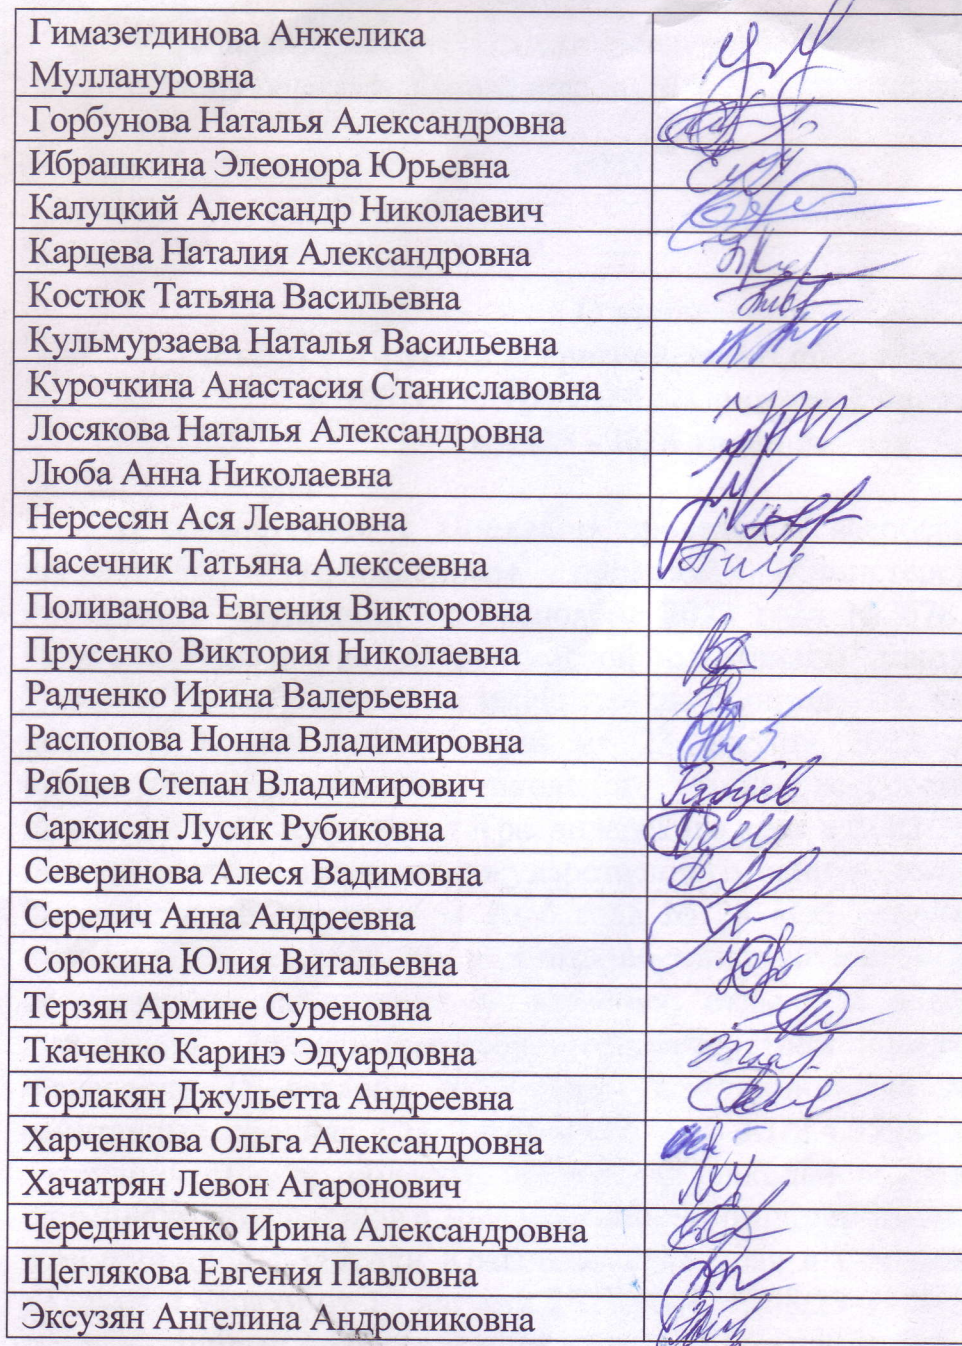 Гимазетдинова Анжелика
Муллануровна
Горбунова Наталья Александровна
Ибрашкина Элеонора Юрьевна
Калуцкий Александр Николаевич
Карцева Наталия Александровна
Костюк Татьяна Васильевна
Кульмурзаева Наталья Васильевна
Курочкина Анастасия Станиславовна
Лосякова Наталья Александровна
Люба Анна Николаевна
Нерсесян Ася Левановна
Пасечник Татьяна Алексеевна
Поливанова Евгения Викторовна
Прусенко Виктория Николаевна
Радченко Ирина Валерьевна
Распопова Нонна Владимировна
Рябцев Степан Владимирович Рябцев
Саркисян Лусик Рубиковна
Северинова Алеся Вадимовна
Середич Анна Андреевна
Сорокина Юлия Витальевна
Терзян Армине Суреновна
Ткаченко Каринэ Эдуардовна
Торлакян Джульетта Андреевна
Харченкова Ольга Александровна
Хачатрян Левон Агаронович
Чередниченко Ирина Александровна
Щеглякова Евгения Павловна
Эксузян Ангелина Андрониковна